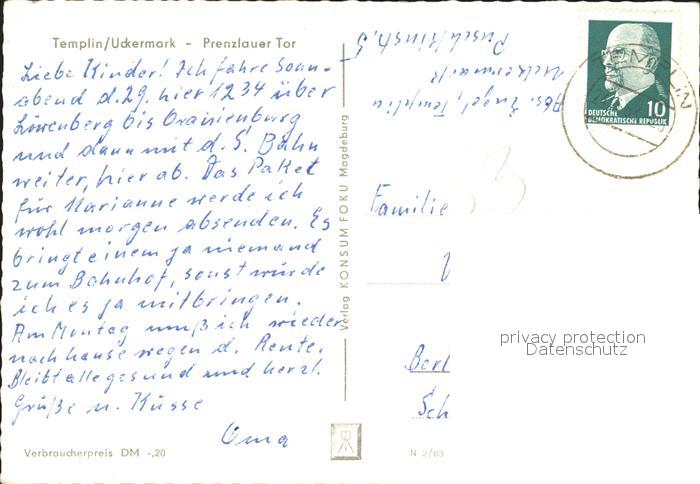 Templin/Uckermark - Prenzlauer Tor
Liebe Kinder! Ich fahre Sonn-
abend d. 29. hier 1234 über
Löwenberg bis Oranienburg
und dann mit d. S. Bahn
weiter, hier ab. Das Paket
für Marianne werde ich
wohl morgen absenden. Es
bringt einem ja niemand
zum Bahnhof, sonst würde
ich es ja mitbringen.
Am Montag muß ich wieder
nach hause wegen d. Rente.
Bleibt alle gesund und herzl.
Grüße u. Küsse
Oma
Verbraucherpreis DM -,20
Verlag KONSUM FOKU Magdeburg
N 2/63
Abs. Engel, Templin
Uckermark
Puschkinstr. 5
TEMPLIN
10
DEUTSCHE
DEMOKRATISCHE REPUBLIK
3
Familie
Berl
Sch
privacy protection
Datenschutz